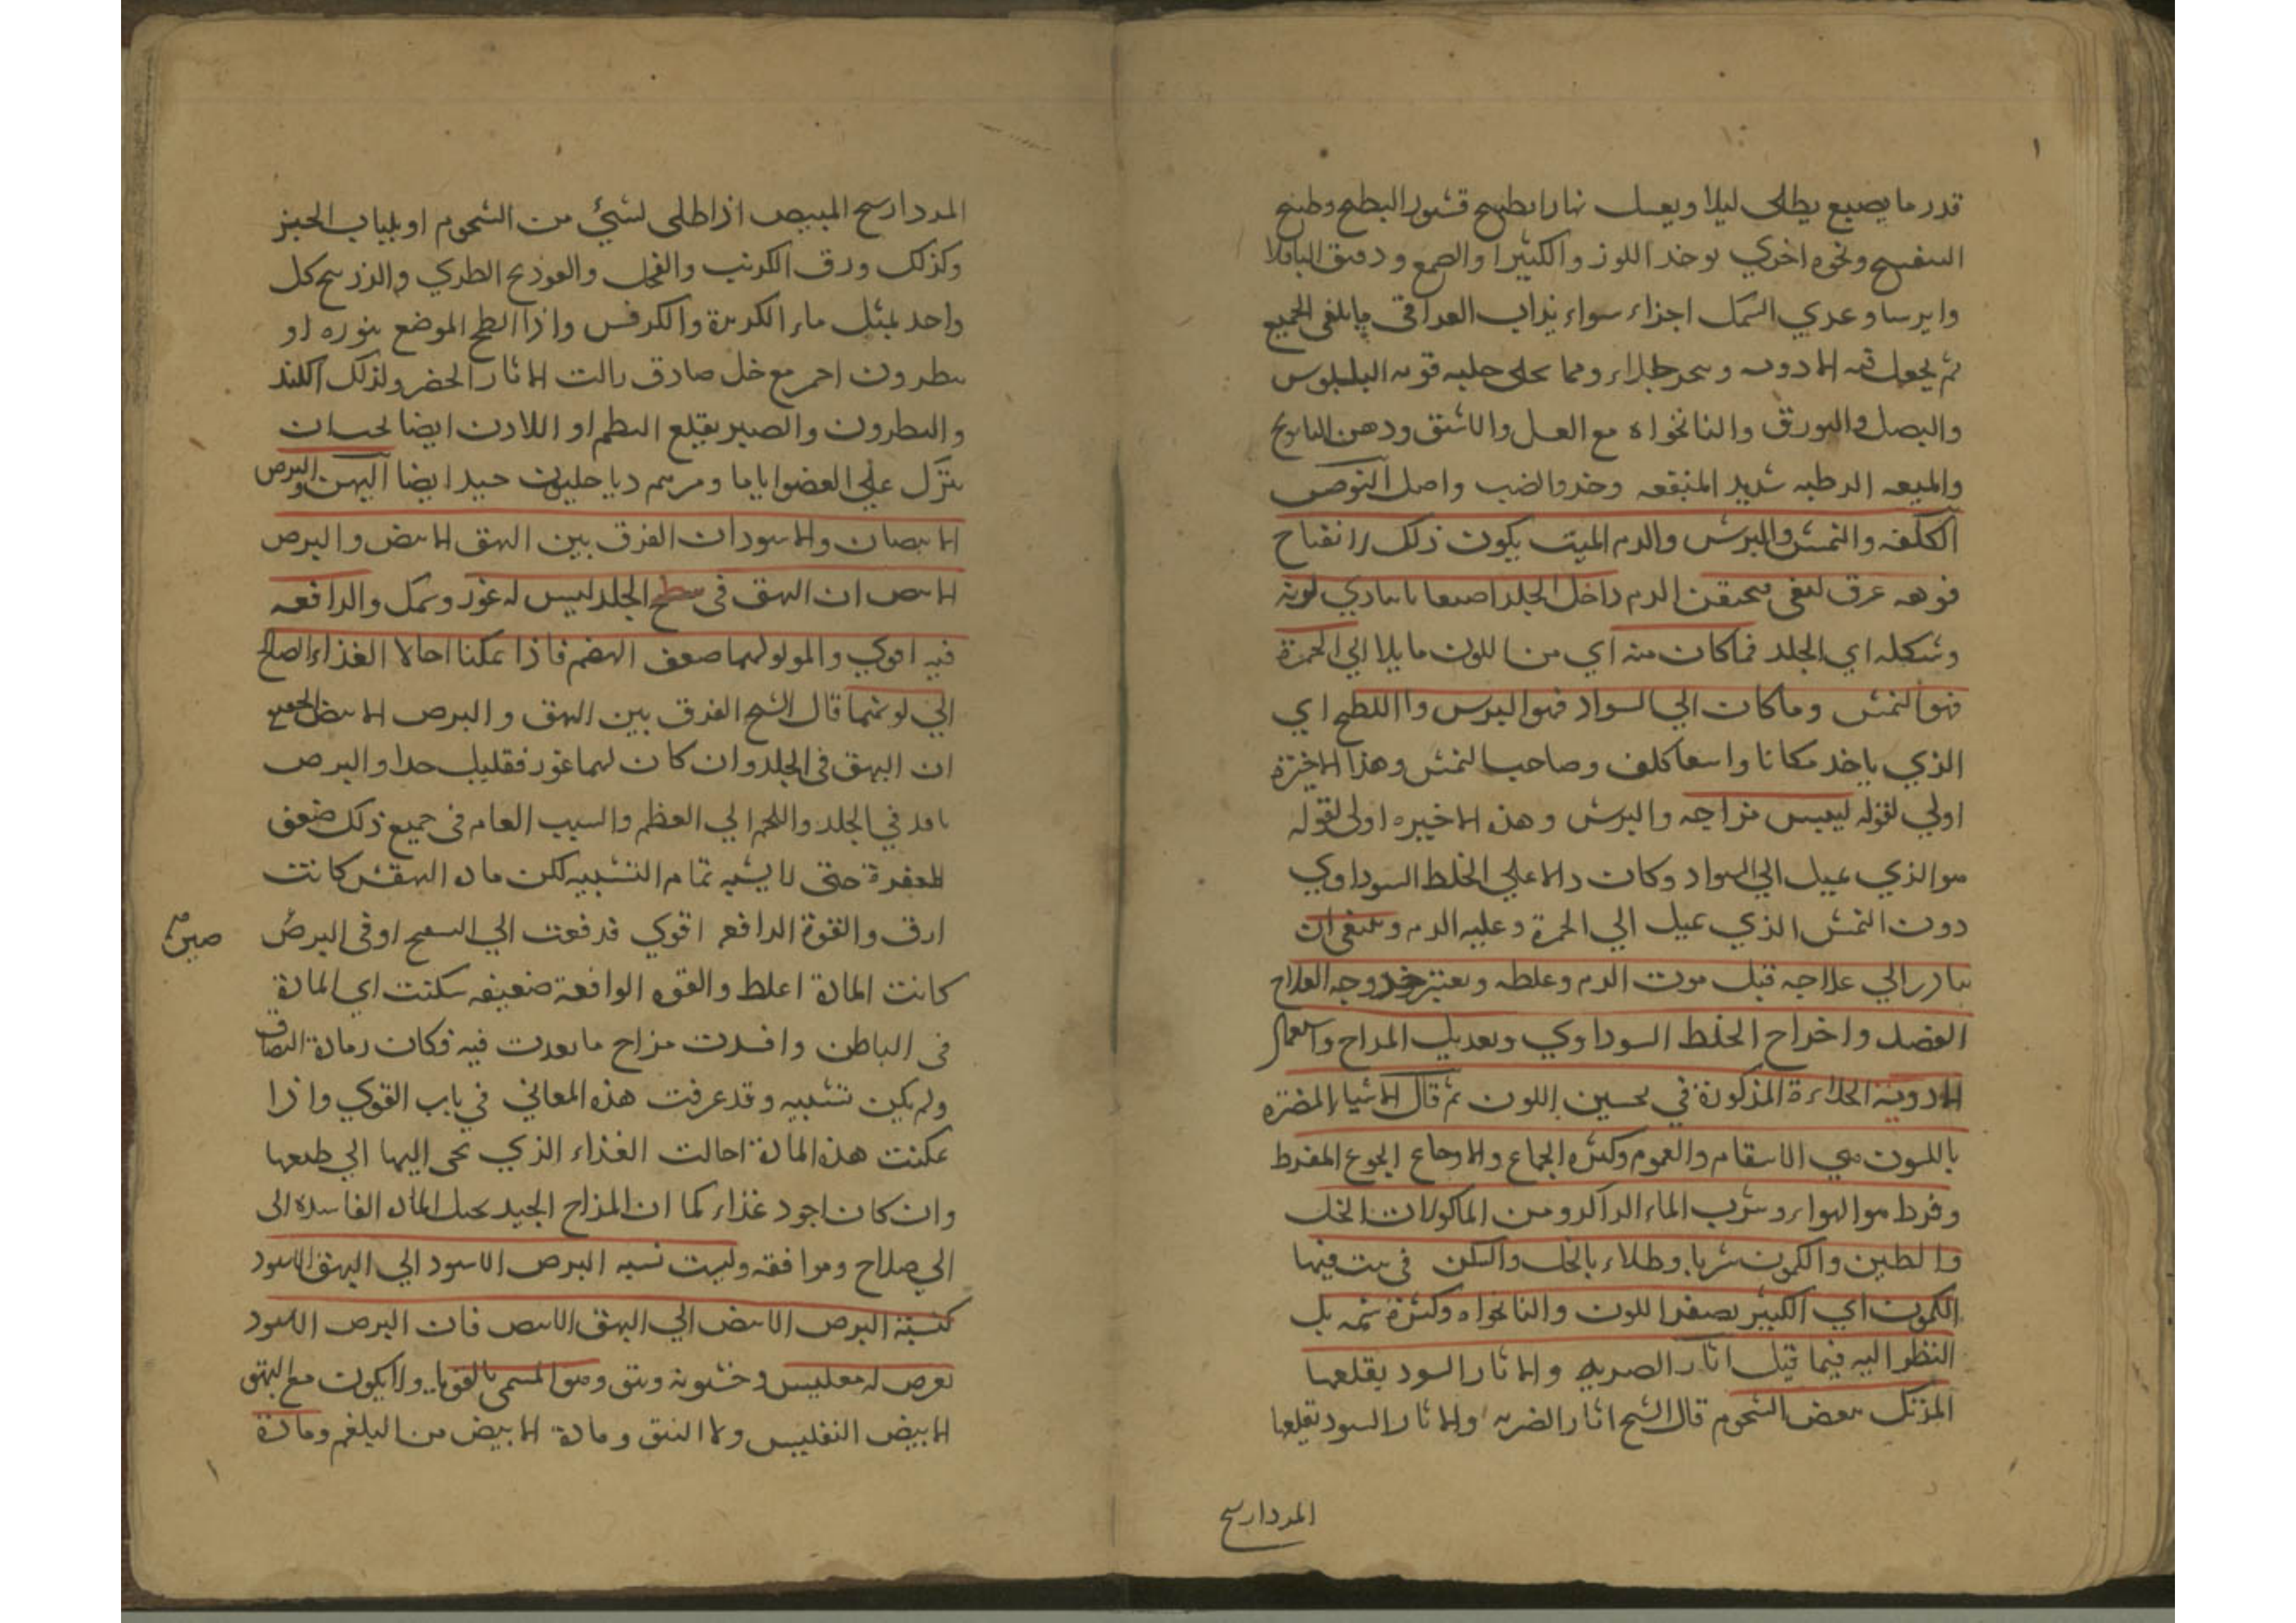 قدر ما يصبع يطلى ليلا ويغسل نهارا بطبيح قشور البطيح وطبيح
البنفسج ونحوه اخري يوخذ اللوز والكثيرا والصمع ودقيق الباقلا
وايرسا وعري السمك اجزاء سواء يذاب الغرا في الجميع
ثم يجعل فيه الادويه
والبصل والبورق والنانخواه مع العسل والاشق ودهن
والميعه الرطبه شديد المنفعه وخرو الضب واصل
الكلف والنمش والبرش والدم الميت يكون ذلك لانفتاح
فوهه عرق ليفي فيحتقن الدم داخل الجلد لونه
وشكله اي الجلد فما كان منه اي من اللون مايلا الي الحمرة
فهو النمش وما كان الي السواد فهو البرس واللطخ اي
الذي ياخذ مكانا واسعا كلف وصاحب النمش وهذا الاخيرة
اولي لقوله ليبس مزاجه والبرش وهذه الاخيره اولى لقوله
هو الذي يميل الي السواد وكان دالا علي الخلط السوداوي
دون النمش الذي يميل الي الحمرة وعليه الدم وينبغي ان
يبادر الي علاجه قبل موت الدم وغلظه العلاج
الفصد واخراج الخلط السوداوي وتعديل المزاج واستعمال
الادوية الجلاءة المذكورة في تحسين اللون ثم قال الاشياء المضره
باللون هي الاسقام والغموم وكثره الجماع والاوجاع الجوع المفرط
وفرط هو الهواء وشرب الماء الراكد ومن الماكولات الخل
والطين والكمون شربا وطلاء بالخل والسكن في بيت فيها
الكمون اي الكثير يصفر اللون والنانخواه وكثرة شمه بل
النظر اليه فيما قيل اثار الضربه والاثار السود يقلعها
المرتك ببعض الشحوم قال الشيح اثار الضربه والاثار السود تقلعها
المردارسح
المردارسح المبيض اذا طلى لشيء من الشحوم او بلباب الخبز
وكذلك ورق الكرنب والفجل والفودنح الطري والزرنيح كل
واحد بمثل ماء الكزبرة والكرفس واذا الطح الموضع بنوره او
بنطرون احمر مع خل حاذق زالت الاثار الخضر ولذلك الكند
والنطرون والصبر يقلع البطم او اللادن ايضا
يترك علي العضو اياما ومرهم دياخليون جيد ايضا البهق والبرص
الابيضان والاسودان الفرق بين البهق الابيض والبرص
الابيض ان البهق في سطح الجلد ليس له غور وسمك والدافعه
فيه اقوي والمولد لهما ضعف الهضم فاذا تمكنا احالا الغذاء الصالح
الي لونهما قال الشيح الفرق بين البهق والبرص الابيض
ان البهق في الجلد وان كان لهما غور فقليل جدا والبرص
نافذ في الجلد واللحم الي العظم والسبب العام في جميع ذلك ضعف
المغيرة حتى لا يشبه تمام التشبيه لكن ماده البهق كانت
ارق والقوة الدافعه اقوي قدفعت الي السطح او في البرص
كانت المادة اغلظ والقوه الدافعة ضعيفه سكنت اي المادة
في الباطن وافسدت مزاج ما نفدت فيه فكان
ولم يكن تشبيه وقد عرفت هذه المعاني في باب القوي واذا
تمكنت هذه المادة احالت الغذاء الذي تجي اليها الي طبعها
وان كان اجود غذاء كما ان المزاج الجيد يحيل الماده الفاسده الى
الي صلاح وموافقه وليست نسبه البرص الاسود الي البهق الاسود
كنسبة البرص الابيض الي البهق الابيض فان البرص الاسود
يعرض له تفليس وخشونه ونتق وهو المسمي بالقوبا ولا يكون مع البهق
الابيض التفليس ولا النتق ومادة الابيض من البلغم ومادة